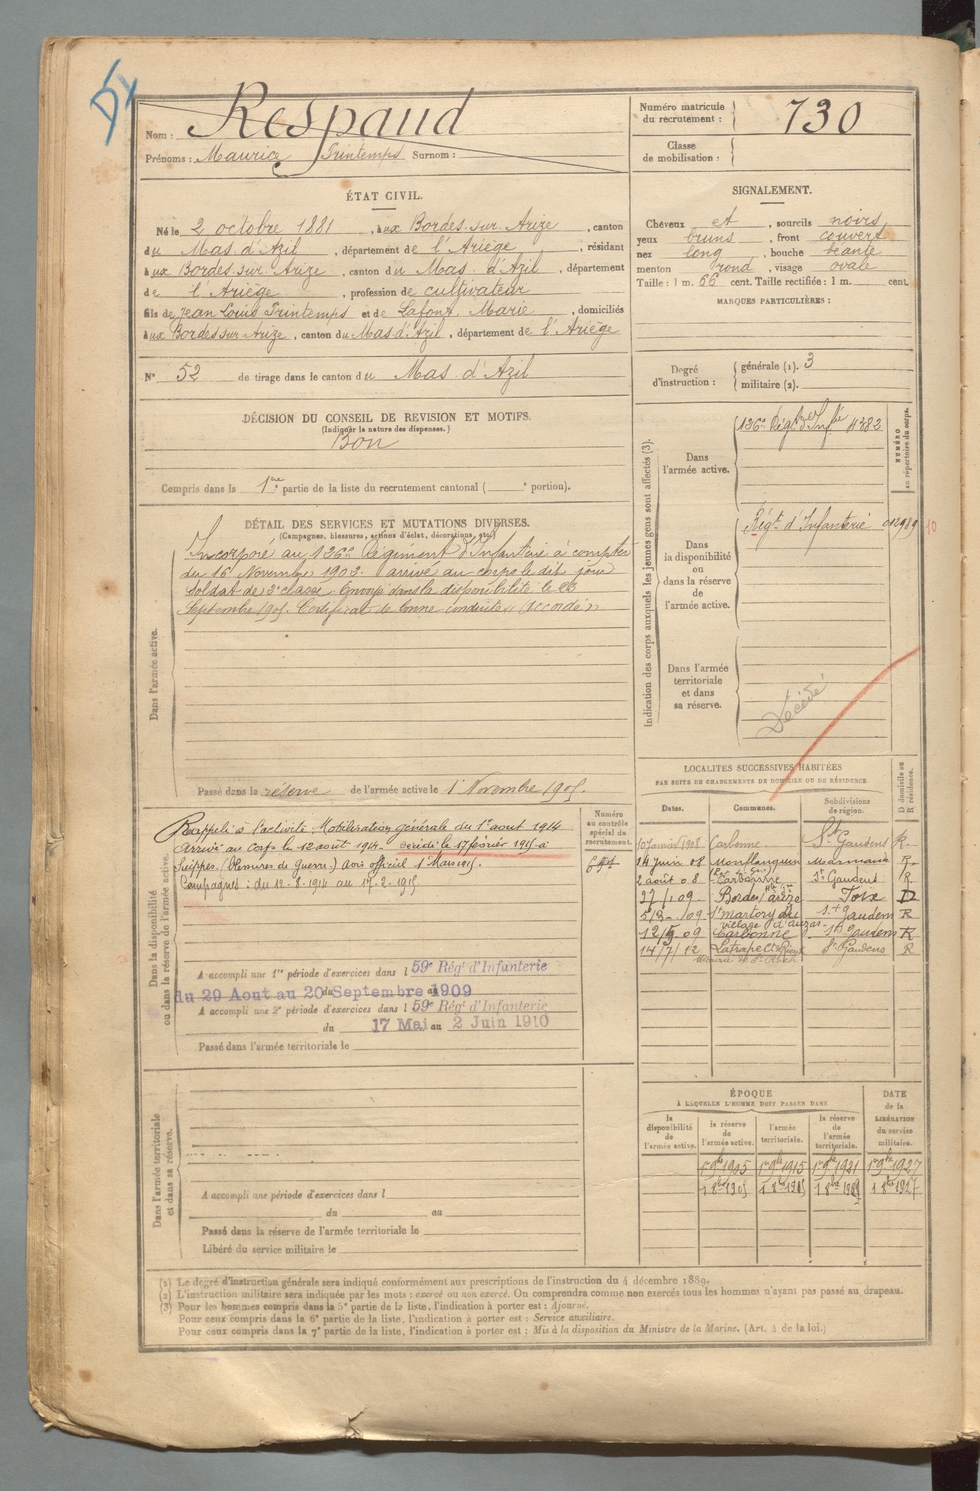 Nom : Respaud
Prénoms : Maurice Printemps Surnom :
Numéro matricule du recrutement : 730
Classe de mobilisation :
ÉTAT CIVIL.
Né le 2 octobre 1881, à ux Bordes-sur-Arize, canton
du Mas-d'Azil, département de l'Ariège, résidant
à ux Bordes-sur-Arize, canton du Mas-d'Azil, département
de l'Ariège, profession de cultivateur
fils de Jean Louis Printemps et de Lafont Marie, domiciliés
à ux Bordes sur Arize, canton du Mas d'Azil, département de l'Ariège
N° 52 de tirage dans le canton du Mas-d'Azil
SIGNALEMENT.
Cheveux et, sourcils noirs
yeux bruns, front couvert
nez long, bouche béante
menton rond, visage ovale
Taille : 1 m. 66 cent. Taille rectifiée : 1 m. cent.
MARQUES PARTICULIÈRES :
Degré d'instruction : générale (1). 3
militaire (2).
DÉCISION DU CONSEIL DE REVISION ET MOTIFS.
(Indiquer la nature des dispenses.)
Bon
Compris dans la 1re partie de la liste du recrutement cantonal ( e portion).
DÉTAIL DES SERVICES ET MUTATIONS DIVERSES.
(Campagnes, blessures, actions d'éclat, décorations, etc.)
Dans l'armée active.
Incorporé au 126e Régiment d'Infanterie à compter
du 16 Novembre 1902. arrivé au corps le dit jour
Soldat de 2e classe. Envoyé dans la disponibilité le
Septembre 1905. Certificat de bonne conduite "Accordé"
Passé dans la réserve de l'armée active le 1 Novembre 1905.
Indication des corps auxquels les jeunes gens sont affectés (3).
NUMÉRO au répertoire du corps.
Dans l'armée active.
126e Régt d'Infie 4382
Dans la disponibilité ou dans la réserve de l'armée active.
Régt. d'Infanterie
Dans l'armée territoriale et dans sa réserve.
Décédé
LOCALITÉS SUCCESSIVES HABITÉES
PAR SUITE DE CHANGEMENTS DE DOMICILE OU DE RÉSIDENCE
D domicile ou R résidence.
Dates. Communes. Subdivisions de région.
10 janvier 1908 Carbonne St Gaudens R.
14 juin 08 Monflanquin Marmande R.
2 août 08 Carbonne St Gaudens R
27/1 09 Bordes s/ Arize Foix D
/09 St martory St Gaudens R
village d'auzas
12/5 09 Carbonne St Gaudens R
14/7/12 Latrape St Gaudens R
Dans la disponibilité ou dans la réserve de l'armée active.
Numéro au contrôle spécial de recrutement.
Rappelé à l'activité Mobilisation générale du 1er aout 1914
Arrivé au Corps le 12 août 1914. Décédé le 17 février 1915 à
Suippes. (Blessures de Guerre.) Avis officiel 1 Mars 1915.
Campagnes : du 12-8-1914 au 17-2-1915.
A accompli une 1re période d'exercices dans l 59e Régt d'Infanterie
du 29 Aout au 20 Septembre 1909
A accompli une 2e période d'exercices dans l 59e Régt d'Infanterie
du 17 Mai au 2 Juin 1910
Passé dans l'armée territoriale le
Dans l'armée territoriale et dans sa réserve.
A accompli une période d'exercices dans l
du au
Passé dans la réserve de l'armée territoriale le
Libéré du service militaire le
ÉPOQUE
À LAQUELLE L'HOMME DOIT PASSER DANS
DATE de la LIBÉRATION du service militaire.
la disponibilité de l'armée active. la réserve de l'armée active. l'armée territoriale. la réserve de l'armée territoriale.
1er 9bre 1905 1er 9bre 1915 1er 9bre 1921 1er 9bre 1927
1 8bre 1905 1 8bre 1915 1 8bre 1921 1 8bre 1927
(1) Le degré d'instruction générale sera indiqué conformément aux prescriptions de l'instruction du 4 décembre 1889.
(2) L'instruction militaire sera indiquée par les mots : exercé ou non exercé. On comprendra comme non exercés tous les hommes n'ayant pas passé au drapeau.
(3) Pour les hommes compris dans la 5e partie de la liste, l'indication à porter est : Ajourné.
Pour ceux compris dans la 6e partie de la liste, l'indication à porter est : Service auxiliaire.
Pour ceux compris dans la 7e partie de la liste, l'indication à porter est : Mis à la disposition du Ministre de la Marine. (Art. 4 de la loi.)